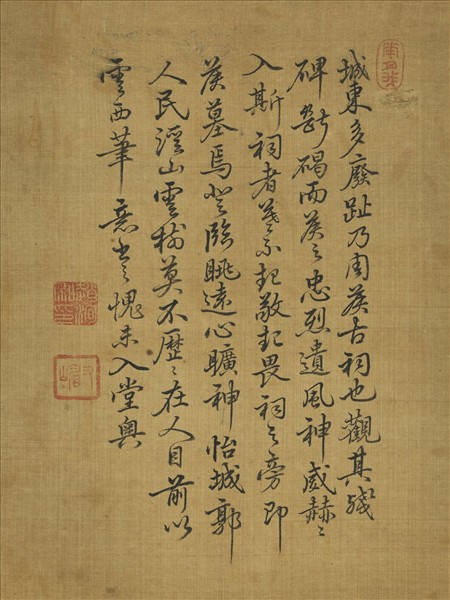 城東多廢趾乃周侯古祠也觀其殘
碑斷碣而侯之忠烈遺風神威赫〻
入斯祠者莫不起敬起畏祠之旁即
侯墓焉登臨眺遠心曠神怡城郭
人民溪山雲樹莫不歷〻在人目前以
雲西筆意出之愧未入堂奧